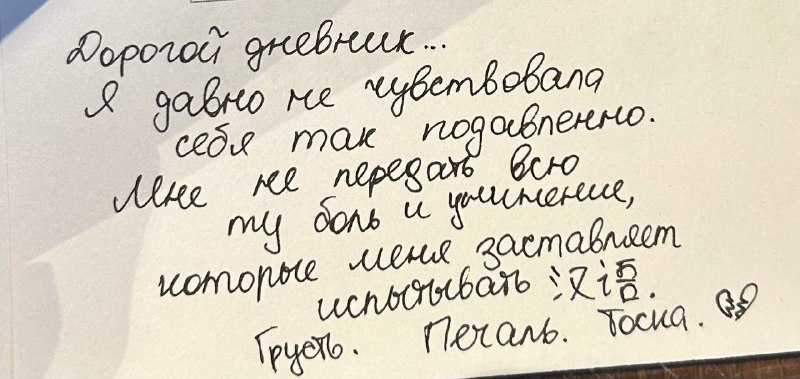 Дорогой дневник...
Я давно не чувствовала
себя так подавленно.
Мне не передать всю
ту боль и унижение,
которые меня заставляет
испытывать 汉语.
Грусть. Печаль. Тоска. 💔